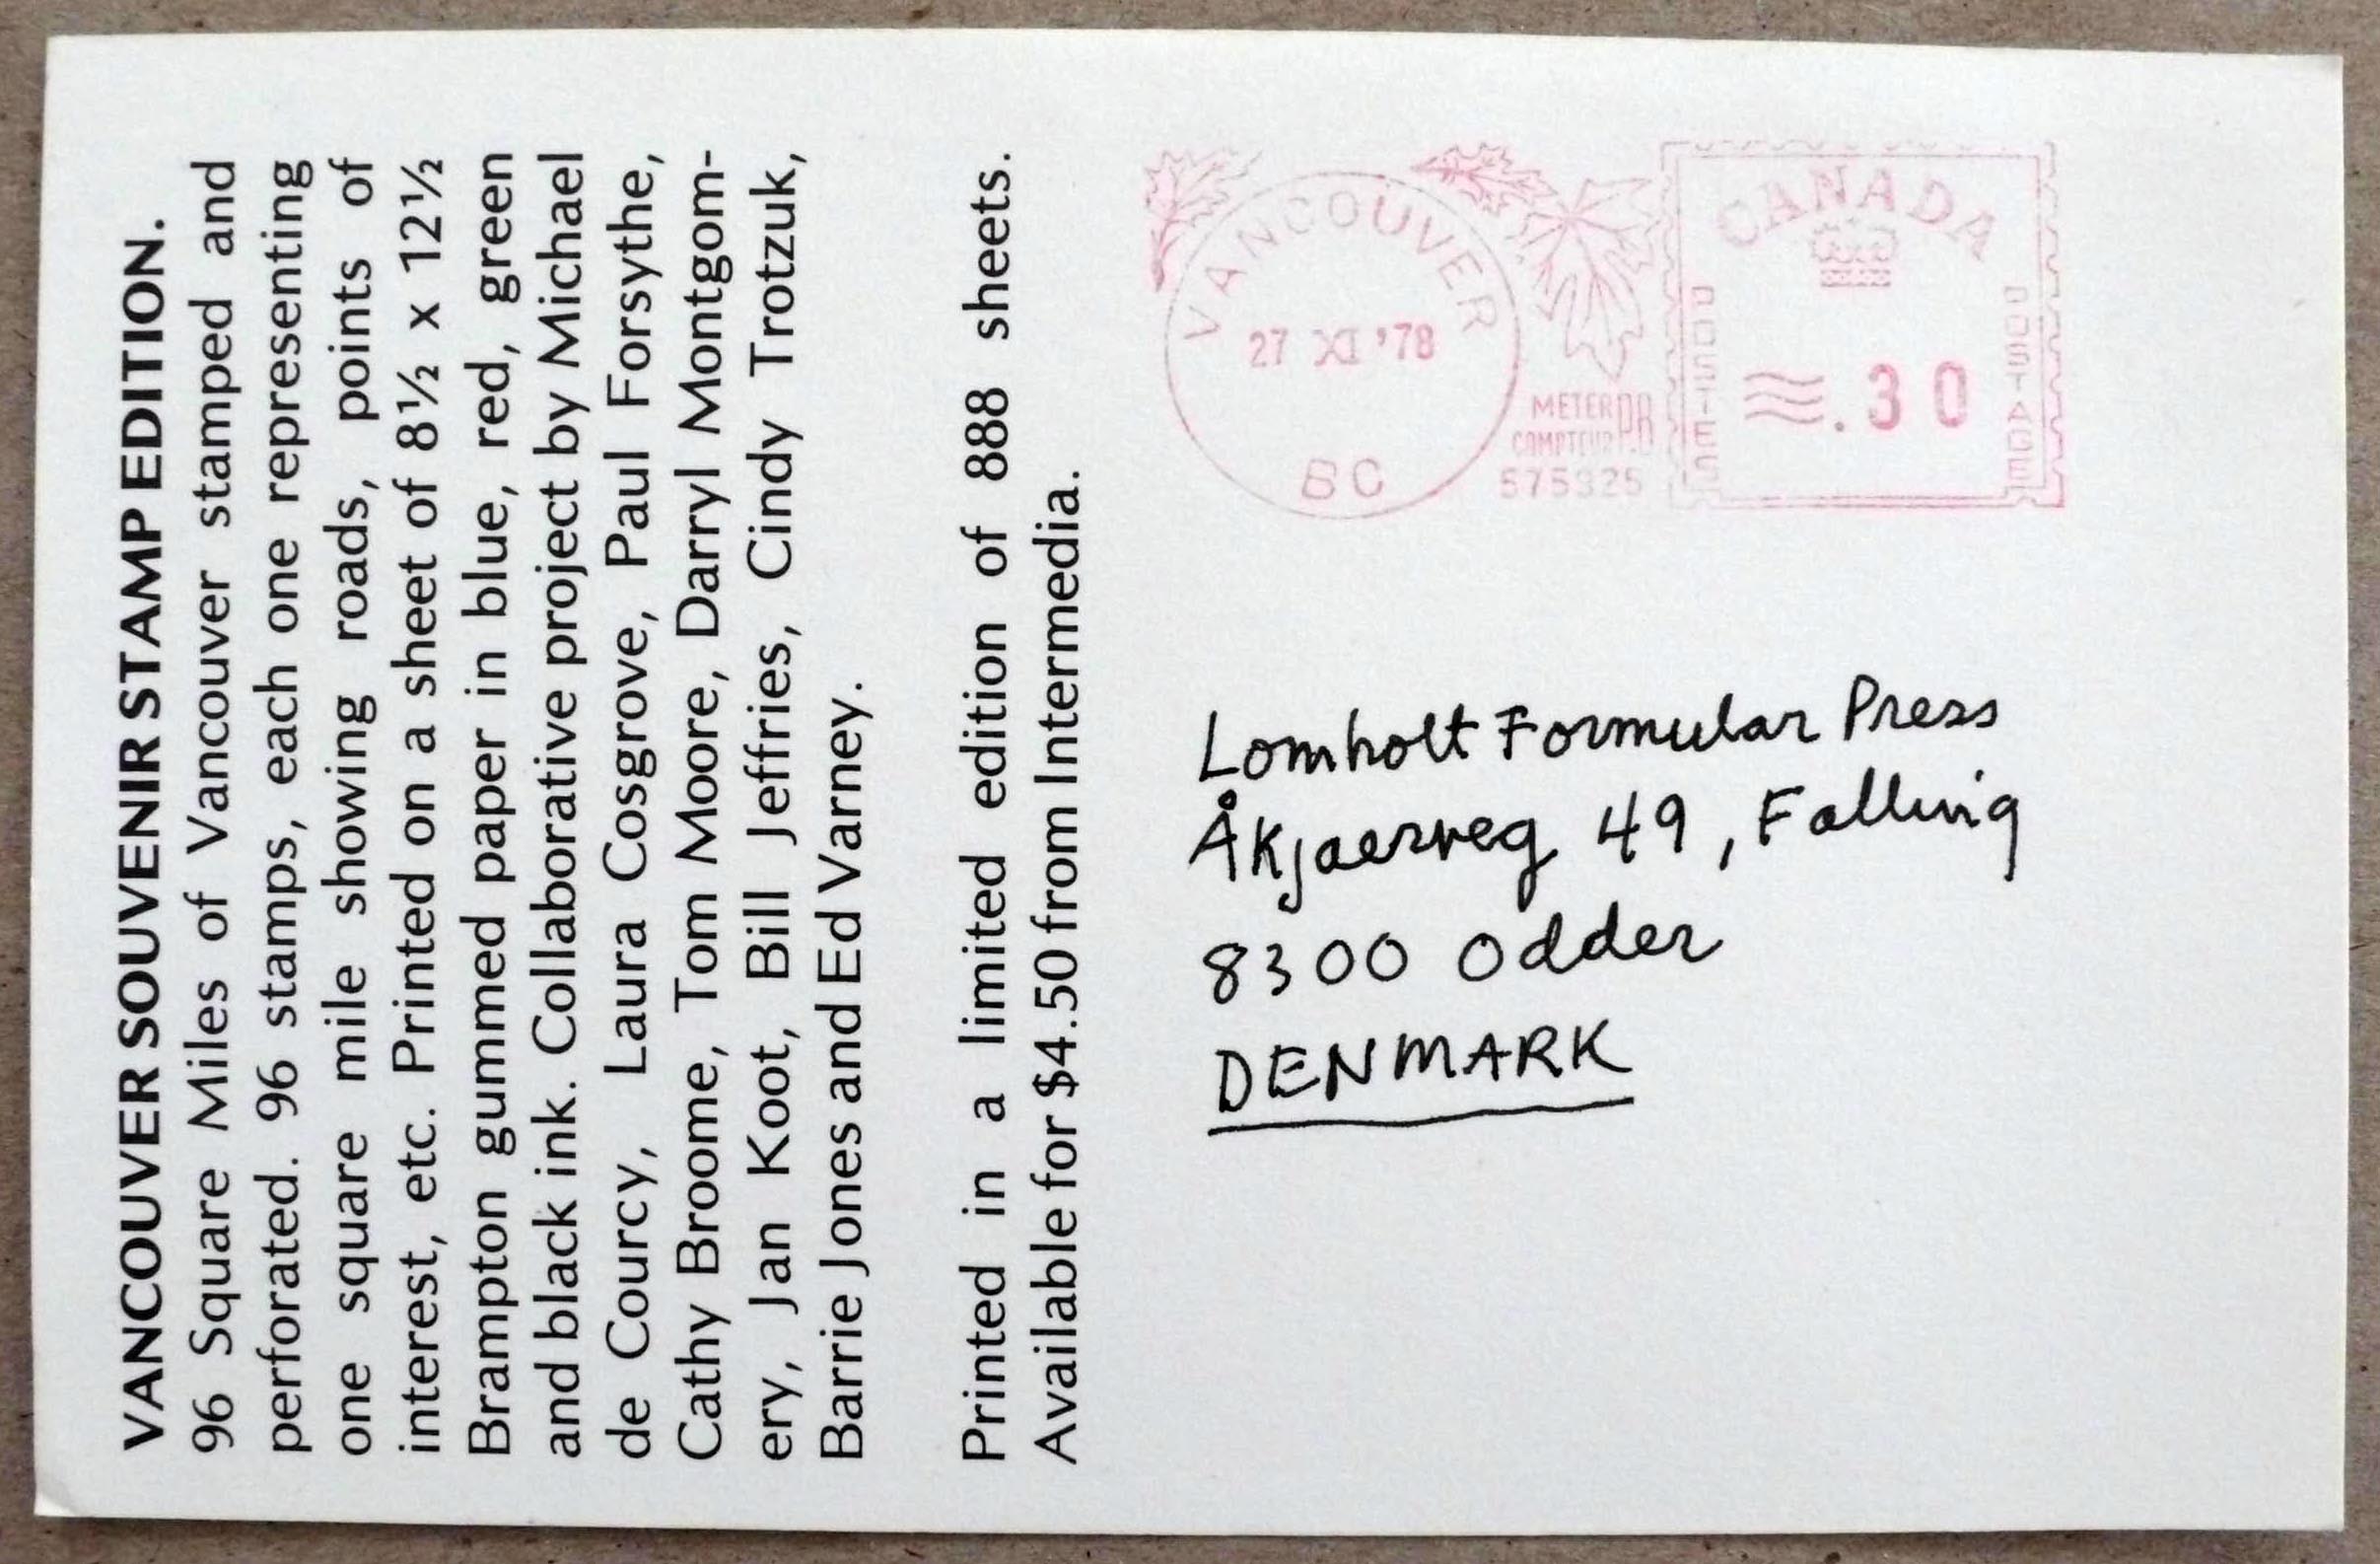 VANCOUVER SOUVENIR STAMP EDITION.
96 Square Miles of Vancouver stamped and
perforated. 96 stamps, each one representing
one square mile showing roads, points of
interest, etc. Printed on a sheet of 8½ x 12½
Brampton gummed paper in blue, red, green
and black ink. Collaborative project by Michael
de Courcy, Laura Cosgrove, Paul Forsythe,
Cathy Broome, Tom Moore, Darryl Montgom-
ery, Jan Koot, Bill Jeffries, Cindy Trotzuk,
Barrie Jones and Ed Varney.
Printed in a limited edition of 888 sheets.
Available for $4.50 from Intermedia.
VANCOUVER
27 XI '78
BC
METER
COMPTEUR
P.B.
575325
CANADA
POSTES
POSTAGE
.30
Lomholt Formular Press
Åkjaerveg 49, Falling
8300 Odder
DENMARK